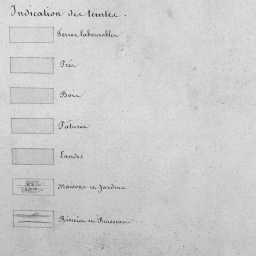 Indication des teintes.
Terres labourables
Prés
Bois
Pâtures
Landes
Maisons et Jardins
Rivières et Ruisseaux